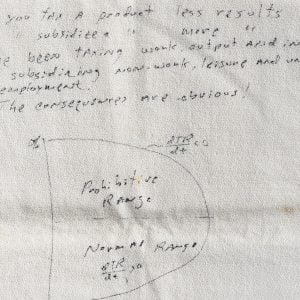 you tax a product less results
subsidize a " more "
e been taxing work, output and in
subsidizing non-work, leisure and un
employment.
The consequences are obvious!
t%
dTR/dt <0
Prohibitive
Range
Normal Range
dTR/dt >0